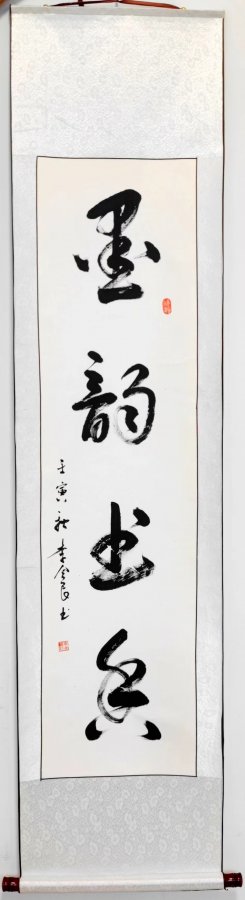 墨韵书香
壬寅秋李金良书